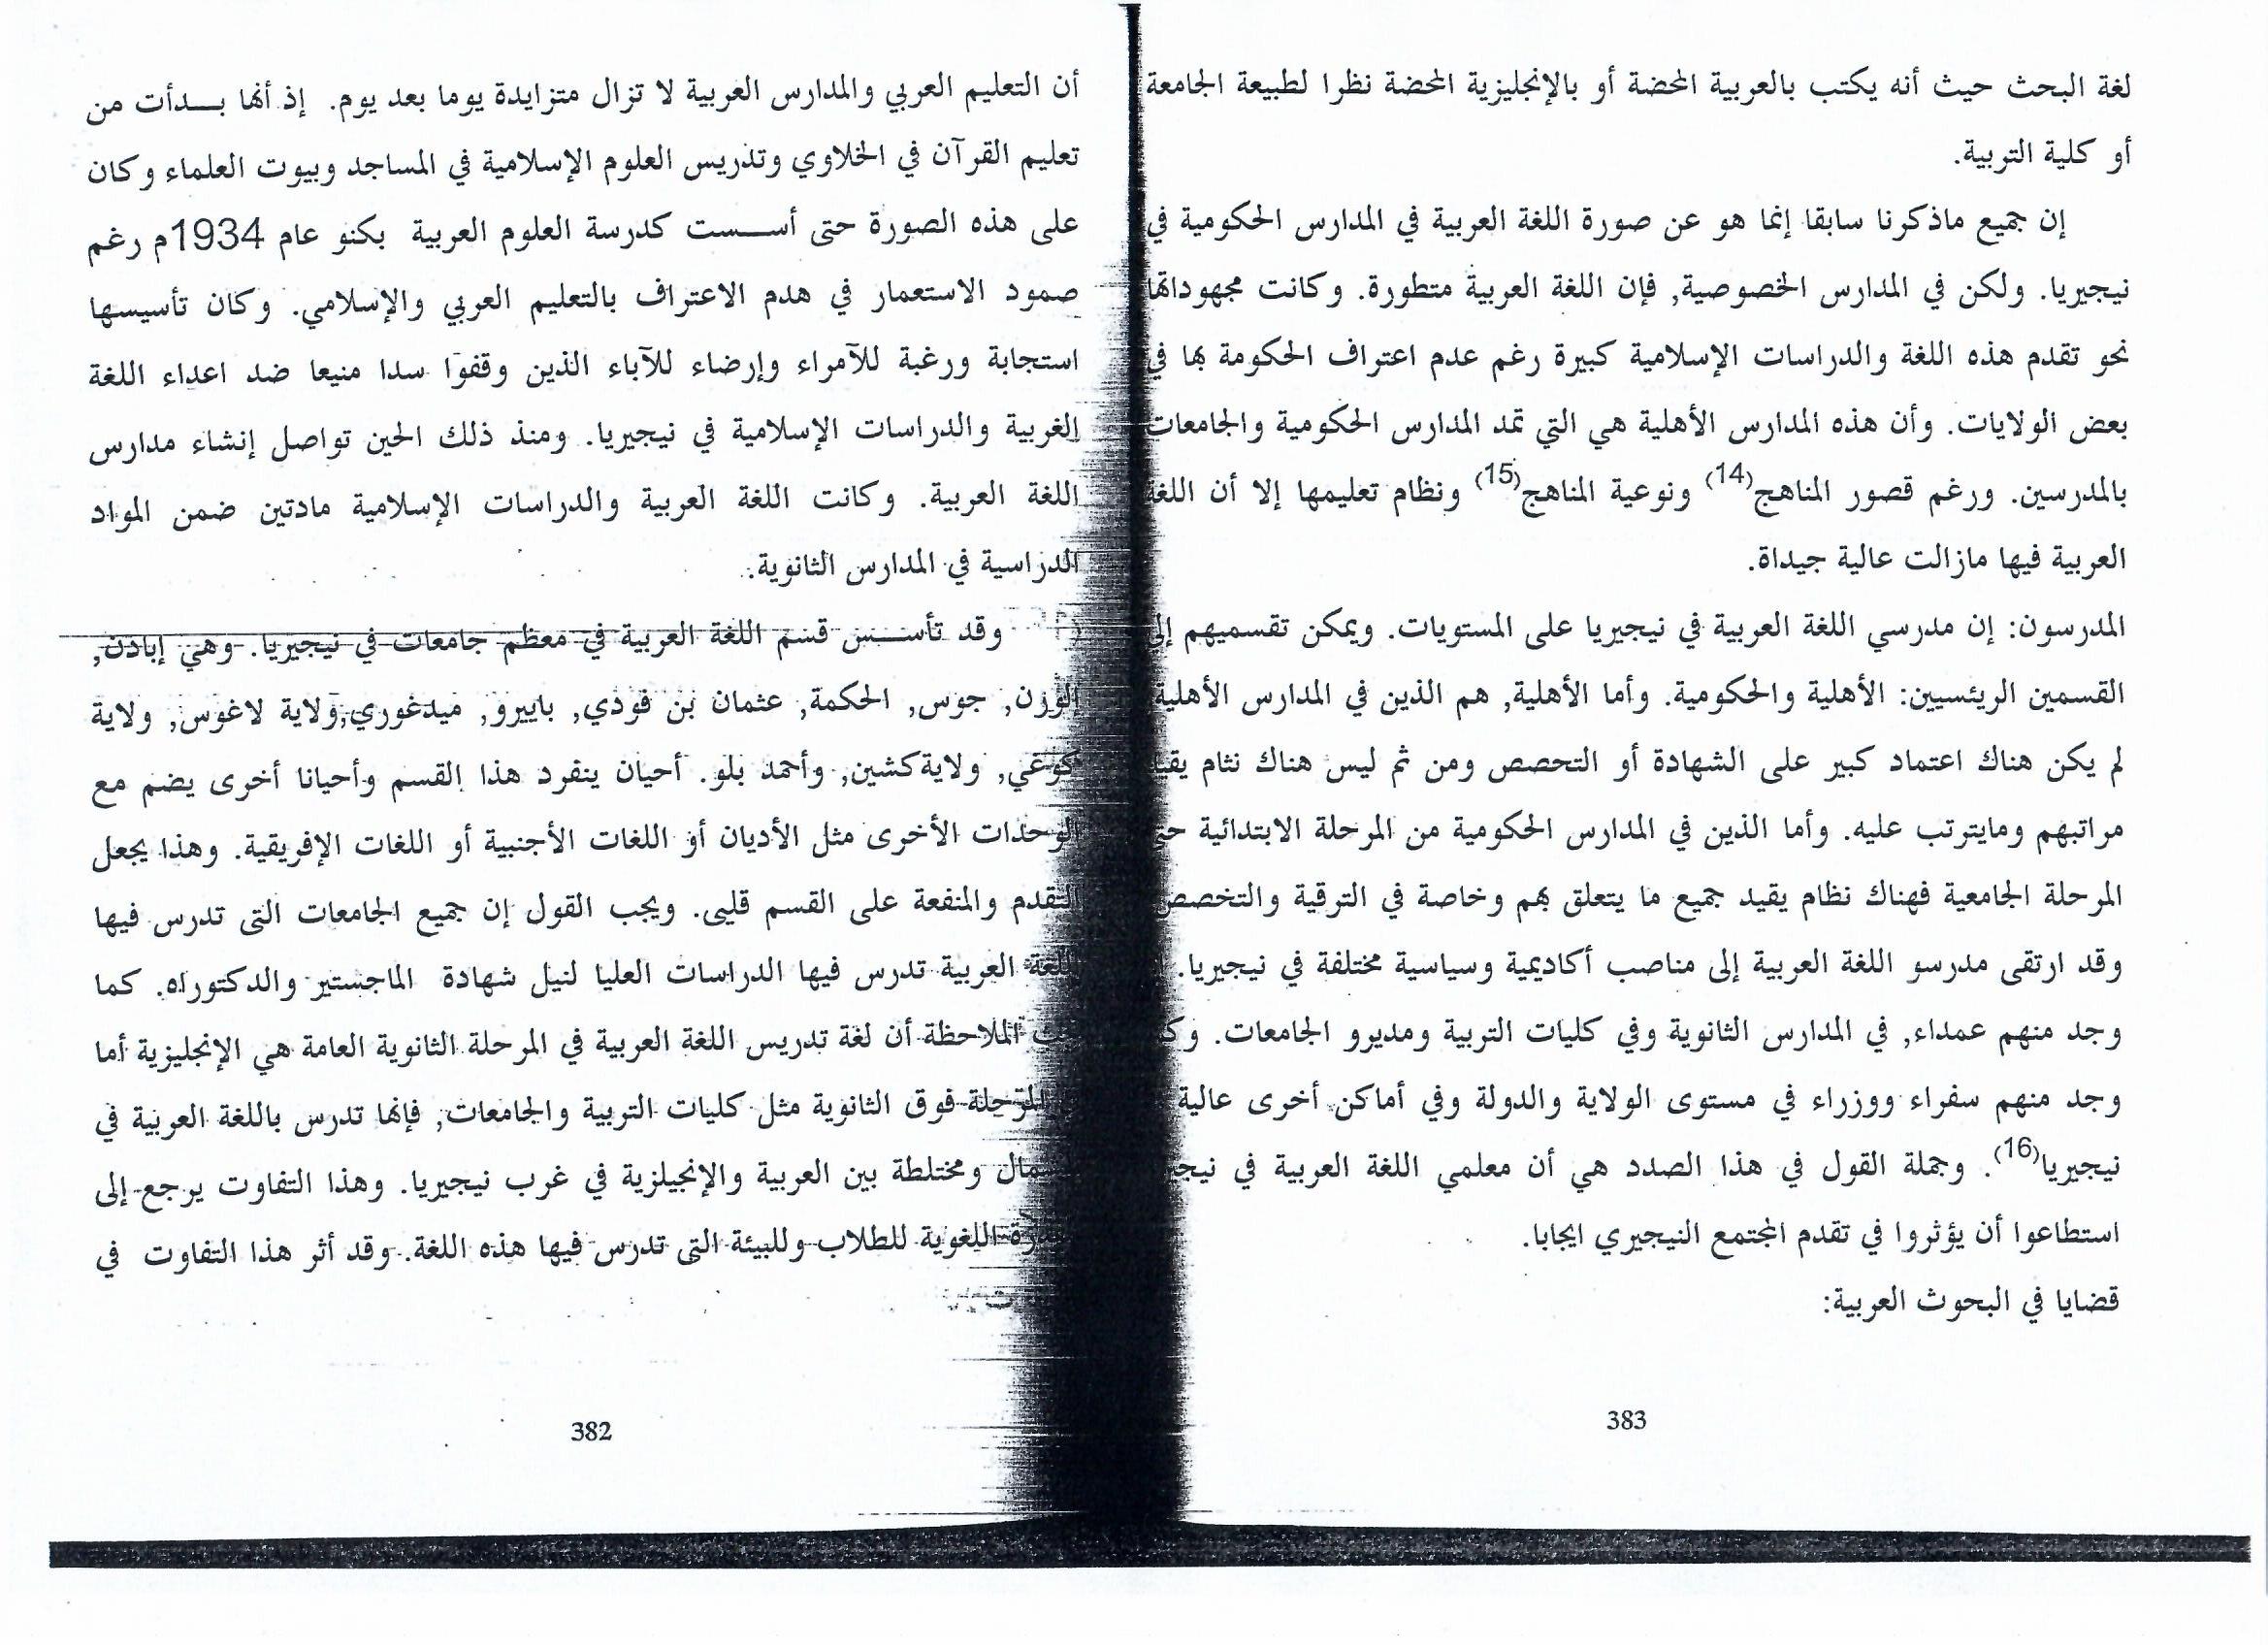 أن التعليم العربي والمدارس العربية لا تزال متزايدة يوما بعد يوم. إذ أنها بـــدأت من
تعليم القرآن في الخلاوي وتدريس العلوم الإسلامية في المساجد وبيوت العلماء وكان
على هذه الصورة حتى أســـست كدرسة العلوم العربية بكنو عام 1934م رغم
صمود الاستعمار في هدم الاعتراف بالتعليم العربي والإسلامي. وكان تأسيسها
استجابة ورغبة للآمراء وإرضاء للآباء الذين وقفوا سدا منيعا ضد اعداء اللغة
الغربية والدراسات الإسلامية في نيجيريا. ومنذ ذلك الحين تواصل إنشاء مدارس
اللغة العربية. وكانت اللغة العربية والدراسات الإسلامية مادتين ضمن المواد
الدراسية في المدارس الثانوية.
وقد تأســـس قسم اللغة العربية في معظم جامعات في نيجيريا. وهي إبادن,
جوس, الحكمة, عثمان بن فودي, باييرو, ميدغوري,ولاية لاغوس, ولاية
كوغي, ولاية كشين, وأحمد بلو. أحيان ينفرد هذا القسم وأحيانا أخرى يضم مع
الوحدات الأخرى مثل الأديان أو اللغات الأجنبية أو اللغات الإفريقية. وهذا يجعل
التقدم والمنفعة على القسم قليى. ويجب القول إن جميع الجامعات التى تدرس فيها
اللغة العربية تدرس فيها الدراسات العليا لنيل شهادة الماجستير والدكتوراه. كما
الملاحظة أن لغة تدريس اللغة العربية في المرحلة الثانوية العامة هي الإنجليزية أما
المرحلة فوق الثانوية مثل كليات التربية والجامعات, فإنها تدرس باللغة العربية في
ومختلطة بين العربية والإنجيلزية في غرب نيجيريا. وهذا التفاوت يرجع إلى
اللغوية للطلاب وللبيئة التى تدرس فيها هذه اللغة. وقد أثر هذا التفاوت في
382
لغة البحث حيث أنه يكتب بالعربية المحضة أو بالإنجليزية المحضة نظرا لطبيعة الجامعة
أو كلية التربية.
إن جميع ماذكرنا سابقا إنما هو عن صورة اللغة العربية في المدارس الحكومية في
نيجيريا. ولكن في المدارس الخصوصية, فإن اللغة العربية متطورة. وكانت مجهوداتها
نحو تقدم هذه اللغة والدراسات الإسلامية كبيرة رغم عدم اعتراف الحكومة بها في
بعض الولايات. وأن هذه المدارس الأهلية هي التي تمد المدارس الحكومية والجامعات
بالمدرسين. ورغم قصور المناهج(14) ونوعية المناهج(15) ونظام تعليمها إلا أن اللغة
العربية فيها مازالت عالية جيداة.
المدرسون: إن مدرسي اللغة العربية في نيجيريا على المستويات. ويمكن تقسميهم إلى
القسمين الريئسيين: الأهلية والحكومية. وأما الأهلية, هم الذين في المدارس الأهلية
لم يكن هناك اعتماد كبير على الشهادة أو التحصص ومن ثم ليس هناك نثام يقيد
مراتبهم ومايترتب عليه. وأما الذين في المدارس الحكومية من المرحلة الابتدائية حتى
المرحلة الجامعية فهناك نظام يقيد جميع ما يتعلق بهم وخاصة في الترقية والتخصص
وقد ارتقى مدرسو اللغة العربية إلى مناصب أكاديمية وسياسية مختلفة في نيجيريا.
وجد منهم عمداء, في المدارس الثانوية وفي كليات التربية ومديرو الجامعات.
وجد منهم سفراء ووزراء في مستوى الولاية والدولة وفي أماكن أخرى عالية
نيجيريا(16). وجملة القول في هذا الصدد هي أن معلمي اللغة العربية في
استطاعوا أن يؤثروا في تقدم المجتمع النيجيري ايجابا.
قضايا في البحوث العربية:
383